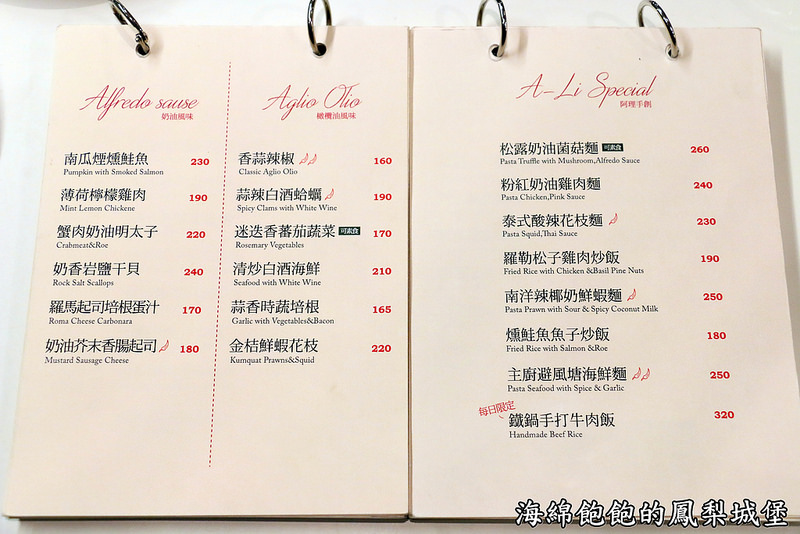 Alfredo sause
奶油風味
南瓜煙燻鮭魚 230
Pumpkin with Smoked Salmon
薄荷檸檬雞肉 190
Mint Lemon Chickene
蟹肉奶油明太子 220
Crabmeat&Roe
奶香岩鹽干貝 240
Rock Salt Scallops
羅馬起司培根蛋汁 170
Roma Cheese Carbonara
奶油芥末香腸起司 180
Mustard Sausage Cheese
Aglio Olio
橄欖油風味
香蒜辣椒 160
Classic Aglio Olio
蒜辣白酒蛤蠣 190
Spicy Clams with White Wine
迷迭香蕃茄蔬菜 可素食 170
Rosemary Vegetables
清炒白酒海鮮 210
Seafood with White Wine
蒜香時蔬培根 165
Garlic with Vegetables&Bacon
金桔鮮蝦花枝 220
Kumquat Prawns&Squid
A-Li Special
阿理手創
松露奶油菌菇麵 可素食 260
Pasta Truffle with Mushroom,Alfredo Sauce
粉紅奶油雞肉麵 240
Pasta Chicken,Pink Sauce
泰式酸辣花枝麵 230
Pasta Squid,Thai Sauce
羅勒松子雞肉炒飯 190
Fried Rice with Chicken &Basil Pine Nuts
南洋辣椰奶鮮蝦麵 250
Pasta Prawn with Sour & Spicy Coconut Milk
燻鮭魚魚子炒飯 180
Fried Rice with Salmon &Roe
主廚避風塘海鮮麵 250
Pasta Seafood with Spice & Garlic
每日限定
鐵鍋手打牛肉飯 320
Handmade Beef Rice
海綿飽飽的鳳梨城堡